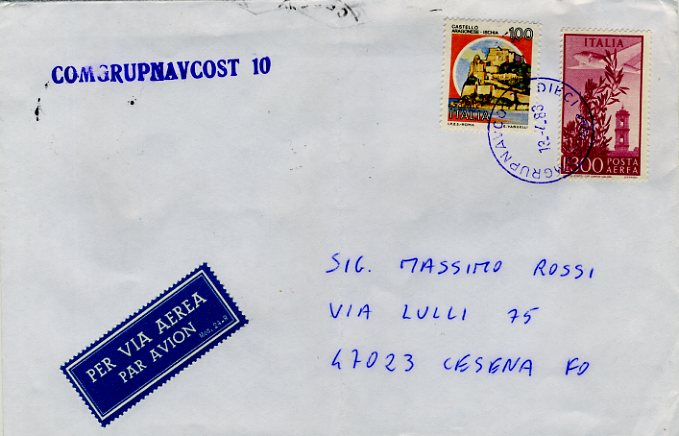 COMGRUPNAVCOST 10
CASTELLO
ARAGONESE - ISCHIA
100
ITALIA
I.P.S.-ROMA
E. VANGELLI
ITALIA
L.300 POSTA
AEREA
12-7-89
SIG. MASSIMO ROSSI
VIA LULLI 75
47023 CESENA FO
PER VIA AEREA
PAR AVION
Mod. 24-R